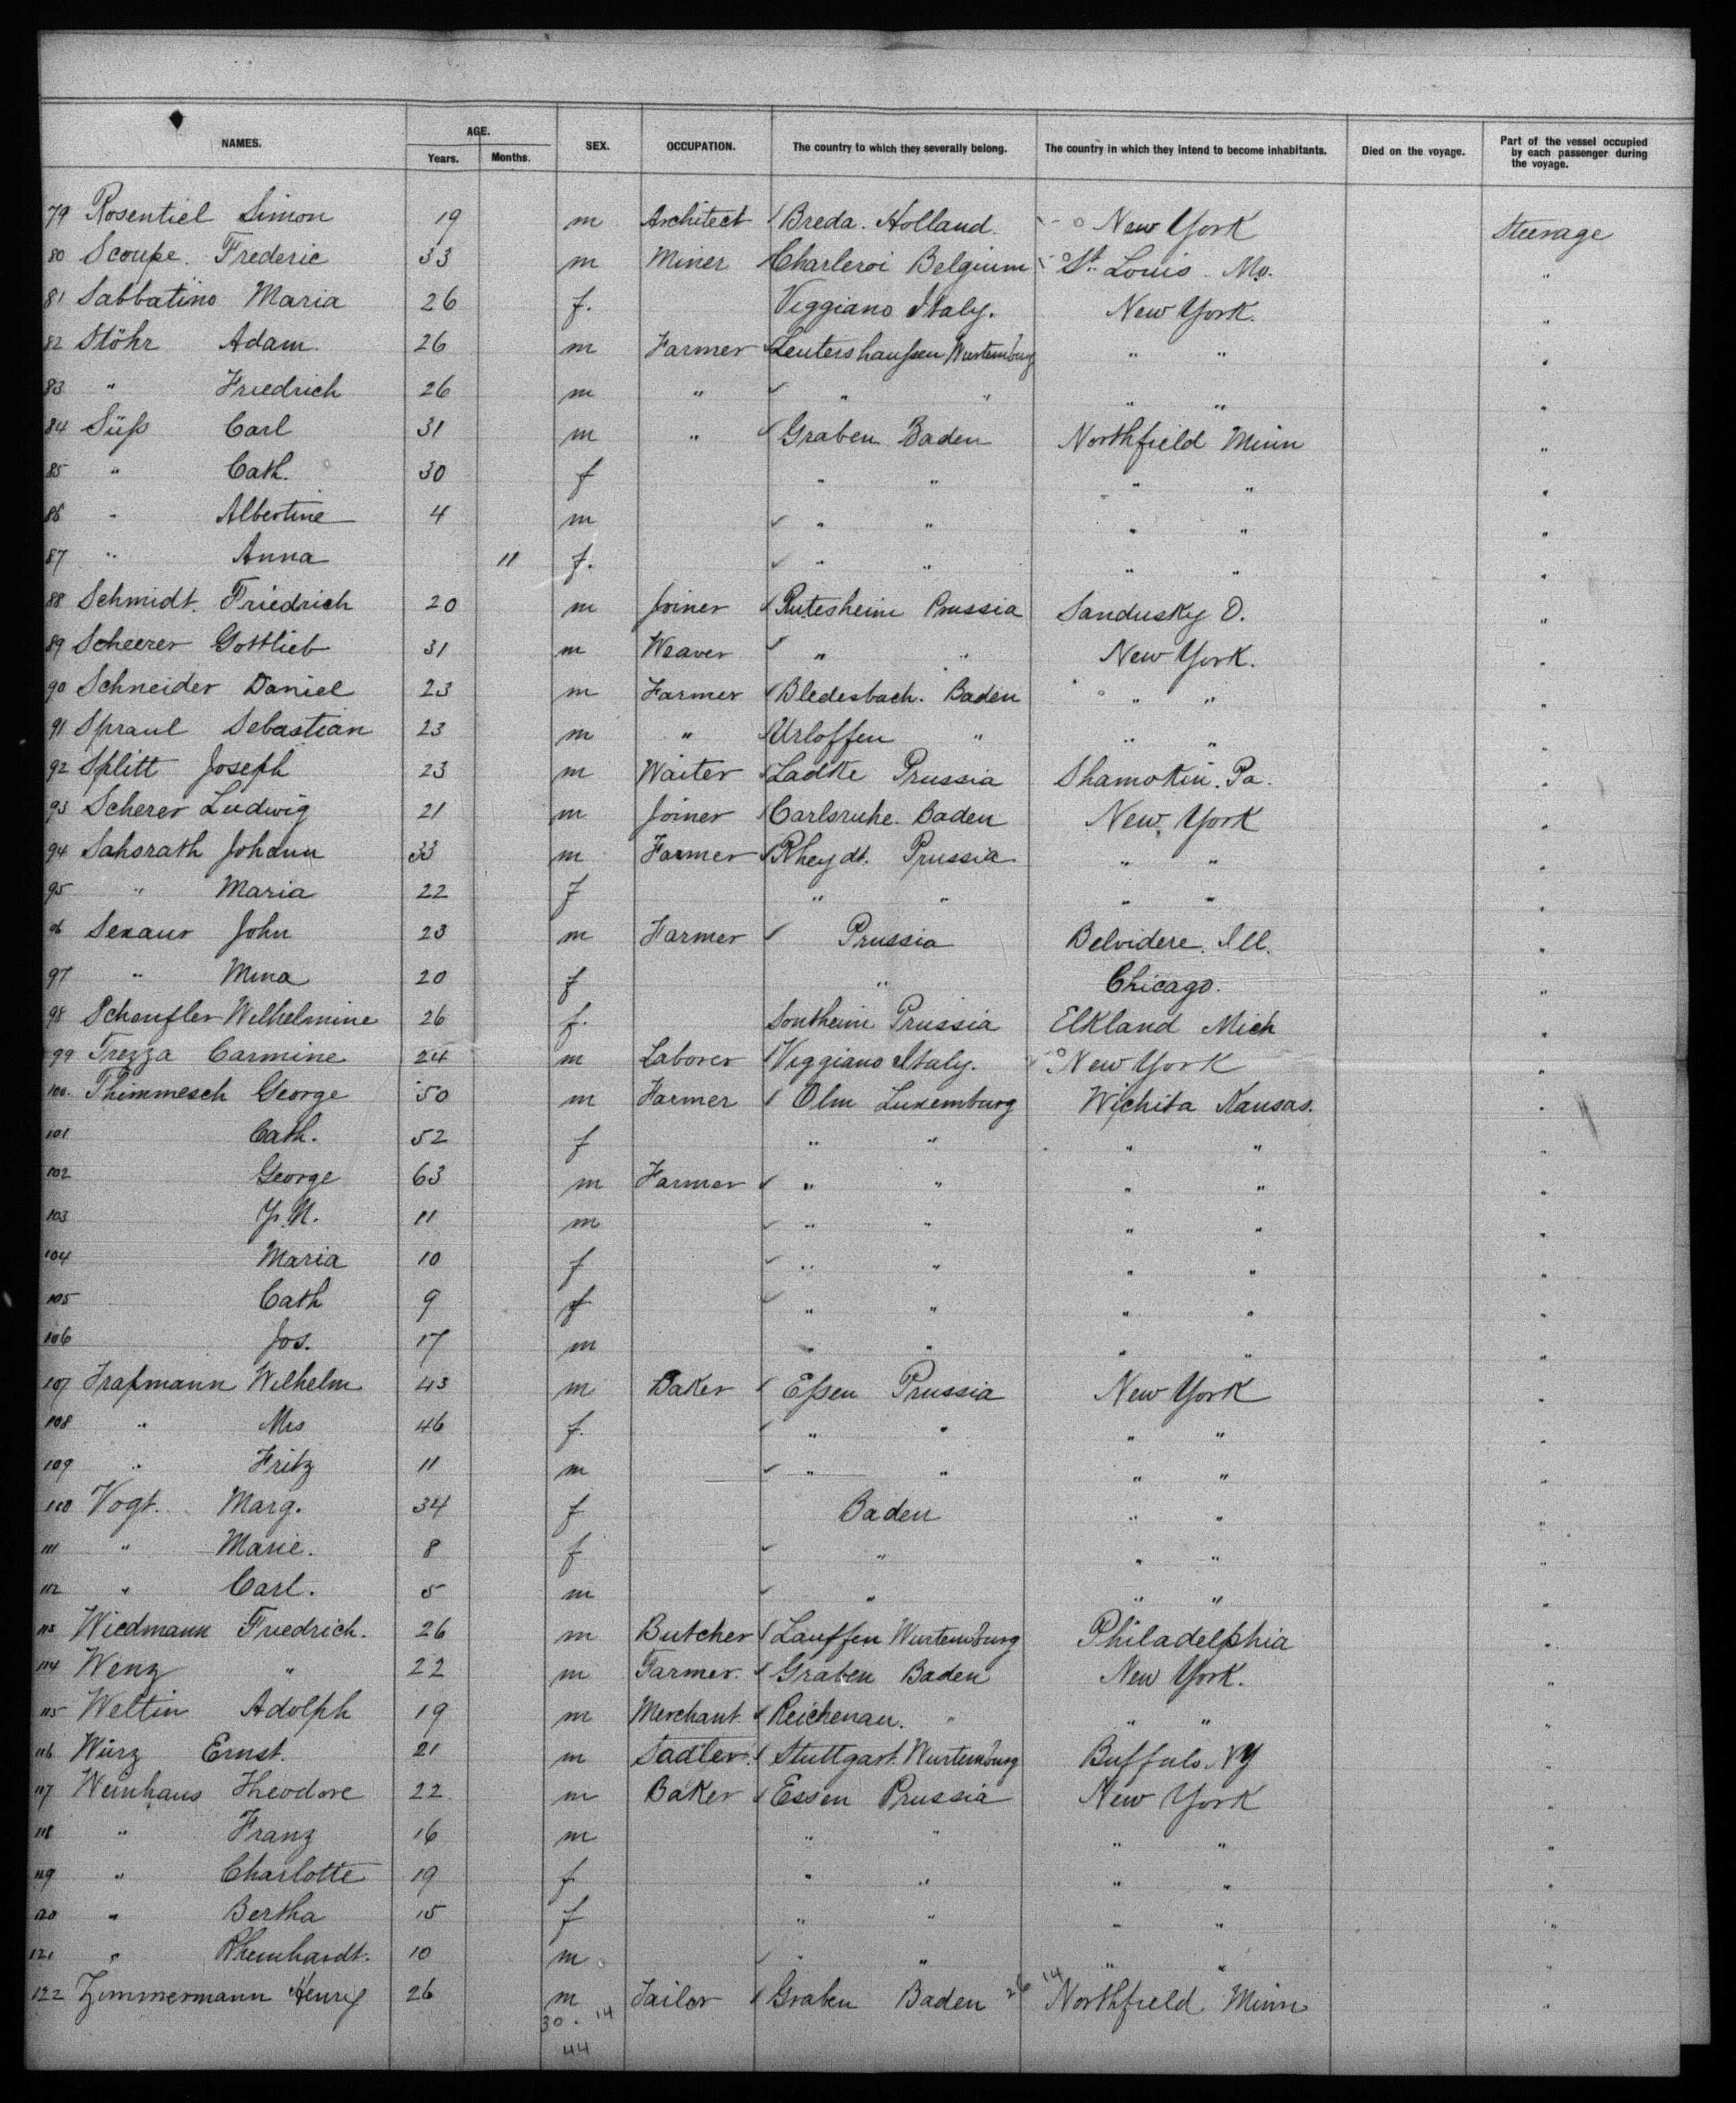 NAMES. AGE. Years. Months. SEX. OCCUPATION. The country to which they severally belong. The country in which they intend to become inhabitants. Died on the voyage. Part of the vessel occupied by each passenger during the voyage.
79 Rosentiel Simon 19 m Architect Breda. Holland. New York Steerage
80 Scoupe. Frederic 33 m Miner Charleroi Belgium St. Louis. Mo. "
81 Sabbatino Maria 26 f. Viggiano Italy. New York. "
82 Stöhr Adam 26 m Farmer Leutershaußen Wurtemburg " " "
83 " Friedrich 26 m " " " " " "
84 Süß Carl 31 m " Graben Baden Northfield Minn "
85 " Cath. 30 f " " " " "
86 " Albertine 4 m " " " " "
87 " Anna 11 f. " " " " "
88 Schmidt. Friedrich 20 m Joiner Rutesheim Prussia Sandusky O. "
89 Scheerer Gottlieb 31 m Weaver " " New York. "
90 Schneider Daniel 23 m Farmer Bledesbach. Baden " " "
91 Spraul Sebastian 23 m " Urloffen " " " "
92 Splitt Joseph 23 m Waiter Ladke Prussia Shamokin. Pa. "
93 Scherer Ludwig 21 m Joiner Carlsruhe. Baden New York "
94 Sahsrath Johann 33 m Farmer Rheydt. Prussia " " "
95 " Maria 22 f " " " " "
96 Sexaur John 23 m Farmer Prussia Belvidere. Ill. "
97 " Mina 20 f " Chicago. "
98 Scheufler Wilhelmine 26 f. Sontheim Prussia Elkland Mich "
99 Trezza Carmine 24 m Laborer Viggiano Italy. New York "
100. Thimmesch George 50 m Farmer Olm Luxemburg Wichita Kansas. "
101 Cath. 52 f " " " " "
102 George 63 m Farmer " " " " "
103 J. N. 11 m " " " " "
104 Maria 10 f " " " " "
105 Cath 9 f " " " " "
106 Jos. 17 m " " " " "
107 Traßmann Wilhelm 43 m Baker Eßen Prussia New York "
108 " Mrs 46 f. " " " " "
109 " Fritz 11 m " " " " "
110 Vogt. Marg. 34 f Baden " " "
111 " Marie. 8 f " " " "
112 " Carl. 5 m " " " "
113 Wiedmann Friedrich. 26 m Butcher Lauffen Wurtemburg Philadelphia "
114 Wenz " 22 m Farmer. Graben Baden New York. "
115 Weltin Adolph 19 m Merchant Reichenau. " " " "
116 Würz Ernst. 21 m Sadler. Stuttgart. Wurtemburg Buffalo. NY "
117 Weinhaus Theodore 22 m Baker Essen Prussia New York "
118 " Franz 16 m " " " " "
119 " Charlotte 19 f " " " " "
120 " Bertha 15 f " " " " "
121 " Rheinhardt. 10 m " " " " "
122 Zimmermann Henry 26 m Tailor Graben Baden 26 14 Northfield Minn "
30. 14
44